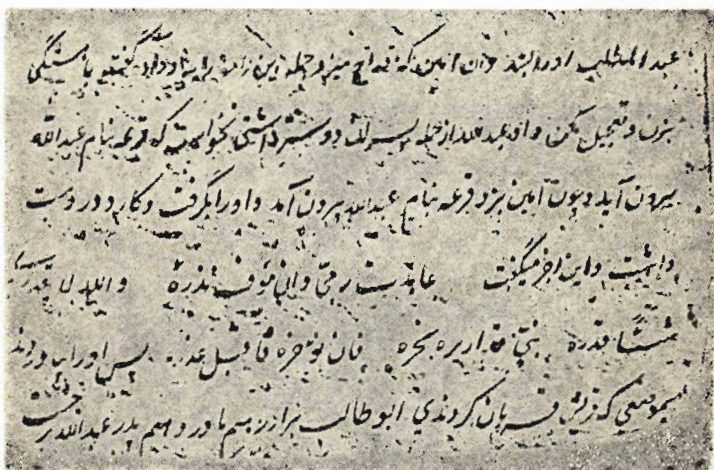 عبد المطلب او را لتد وان امین که قداح میزد جمله این نامها را بدو داد گفت باهستگی
بزن و تعجیل مکن و او عبدالله از جمله پسران دوستر داشتی نخواست که قرعه بنام عبدالله
بیرون آید و چون امین بزد قرعه بنام عبدالله بیرون آمد و او را بگرفت و کارد در دست
داشت و این رجز میگفت عاهدت ربی وانی موف نذره والله لا یقدر
شیئا قدره بنی قد اریده نحره فان یؤخره فاقبل عذره پس او را بیاوردند
بموضعی که قریش قربان کردندی ابو طالب برادر هم مادر و هم پدر عبدالله